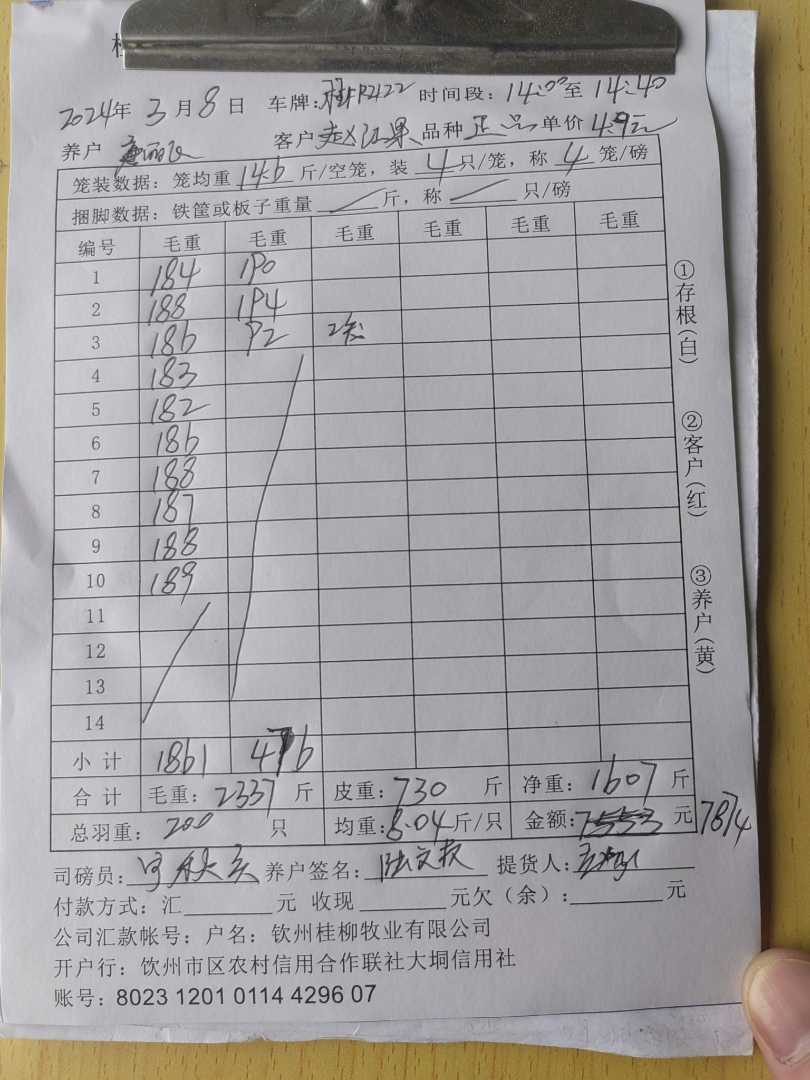 2024年 3月 8日 车牌:桂FR2122 时间段: 14:00至 14:40
养户 客户 赵江果 品种 正品 单价 4.9元
笼装数据: 笼均重 14.6 斤/空笼, 装 4 只/笼, 称 4 笼/磅
捆脚数据: 铁筐或板子重量 / 斤, 称 / 只/磅
编号 毛重 毛重 毛重 毛重 毛重 毛重
1 184 190
2 188 194
3 186 92 2笼
4 183
5 182
6 186
7 188
8 187
9 188
10 189
11
12
13
14
小计 1861 476
合计 毛重: 2337 斤 皮重: 730 斤 净重: 1607 斤
总羽重: 200 只 均重: 8.04 斤/只 金额: 7553 元 7874
司磅员: 养户签名: 陆文权 提货人:
付款方式: 汇 元 收现 元欠(余): 元
公司汇款帐号: 户名: 钦州桂柳牧业有限公司
开户行: 钦州市区农村信用合作联社大垌信用社
账号: 8023 1201 0114 4296 07
①存根(白)
②客户(红)
③养户(黄)